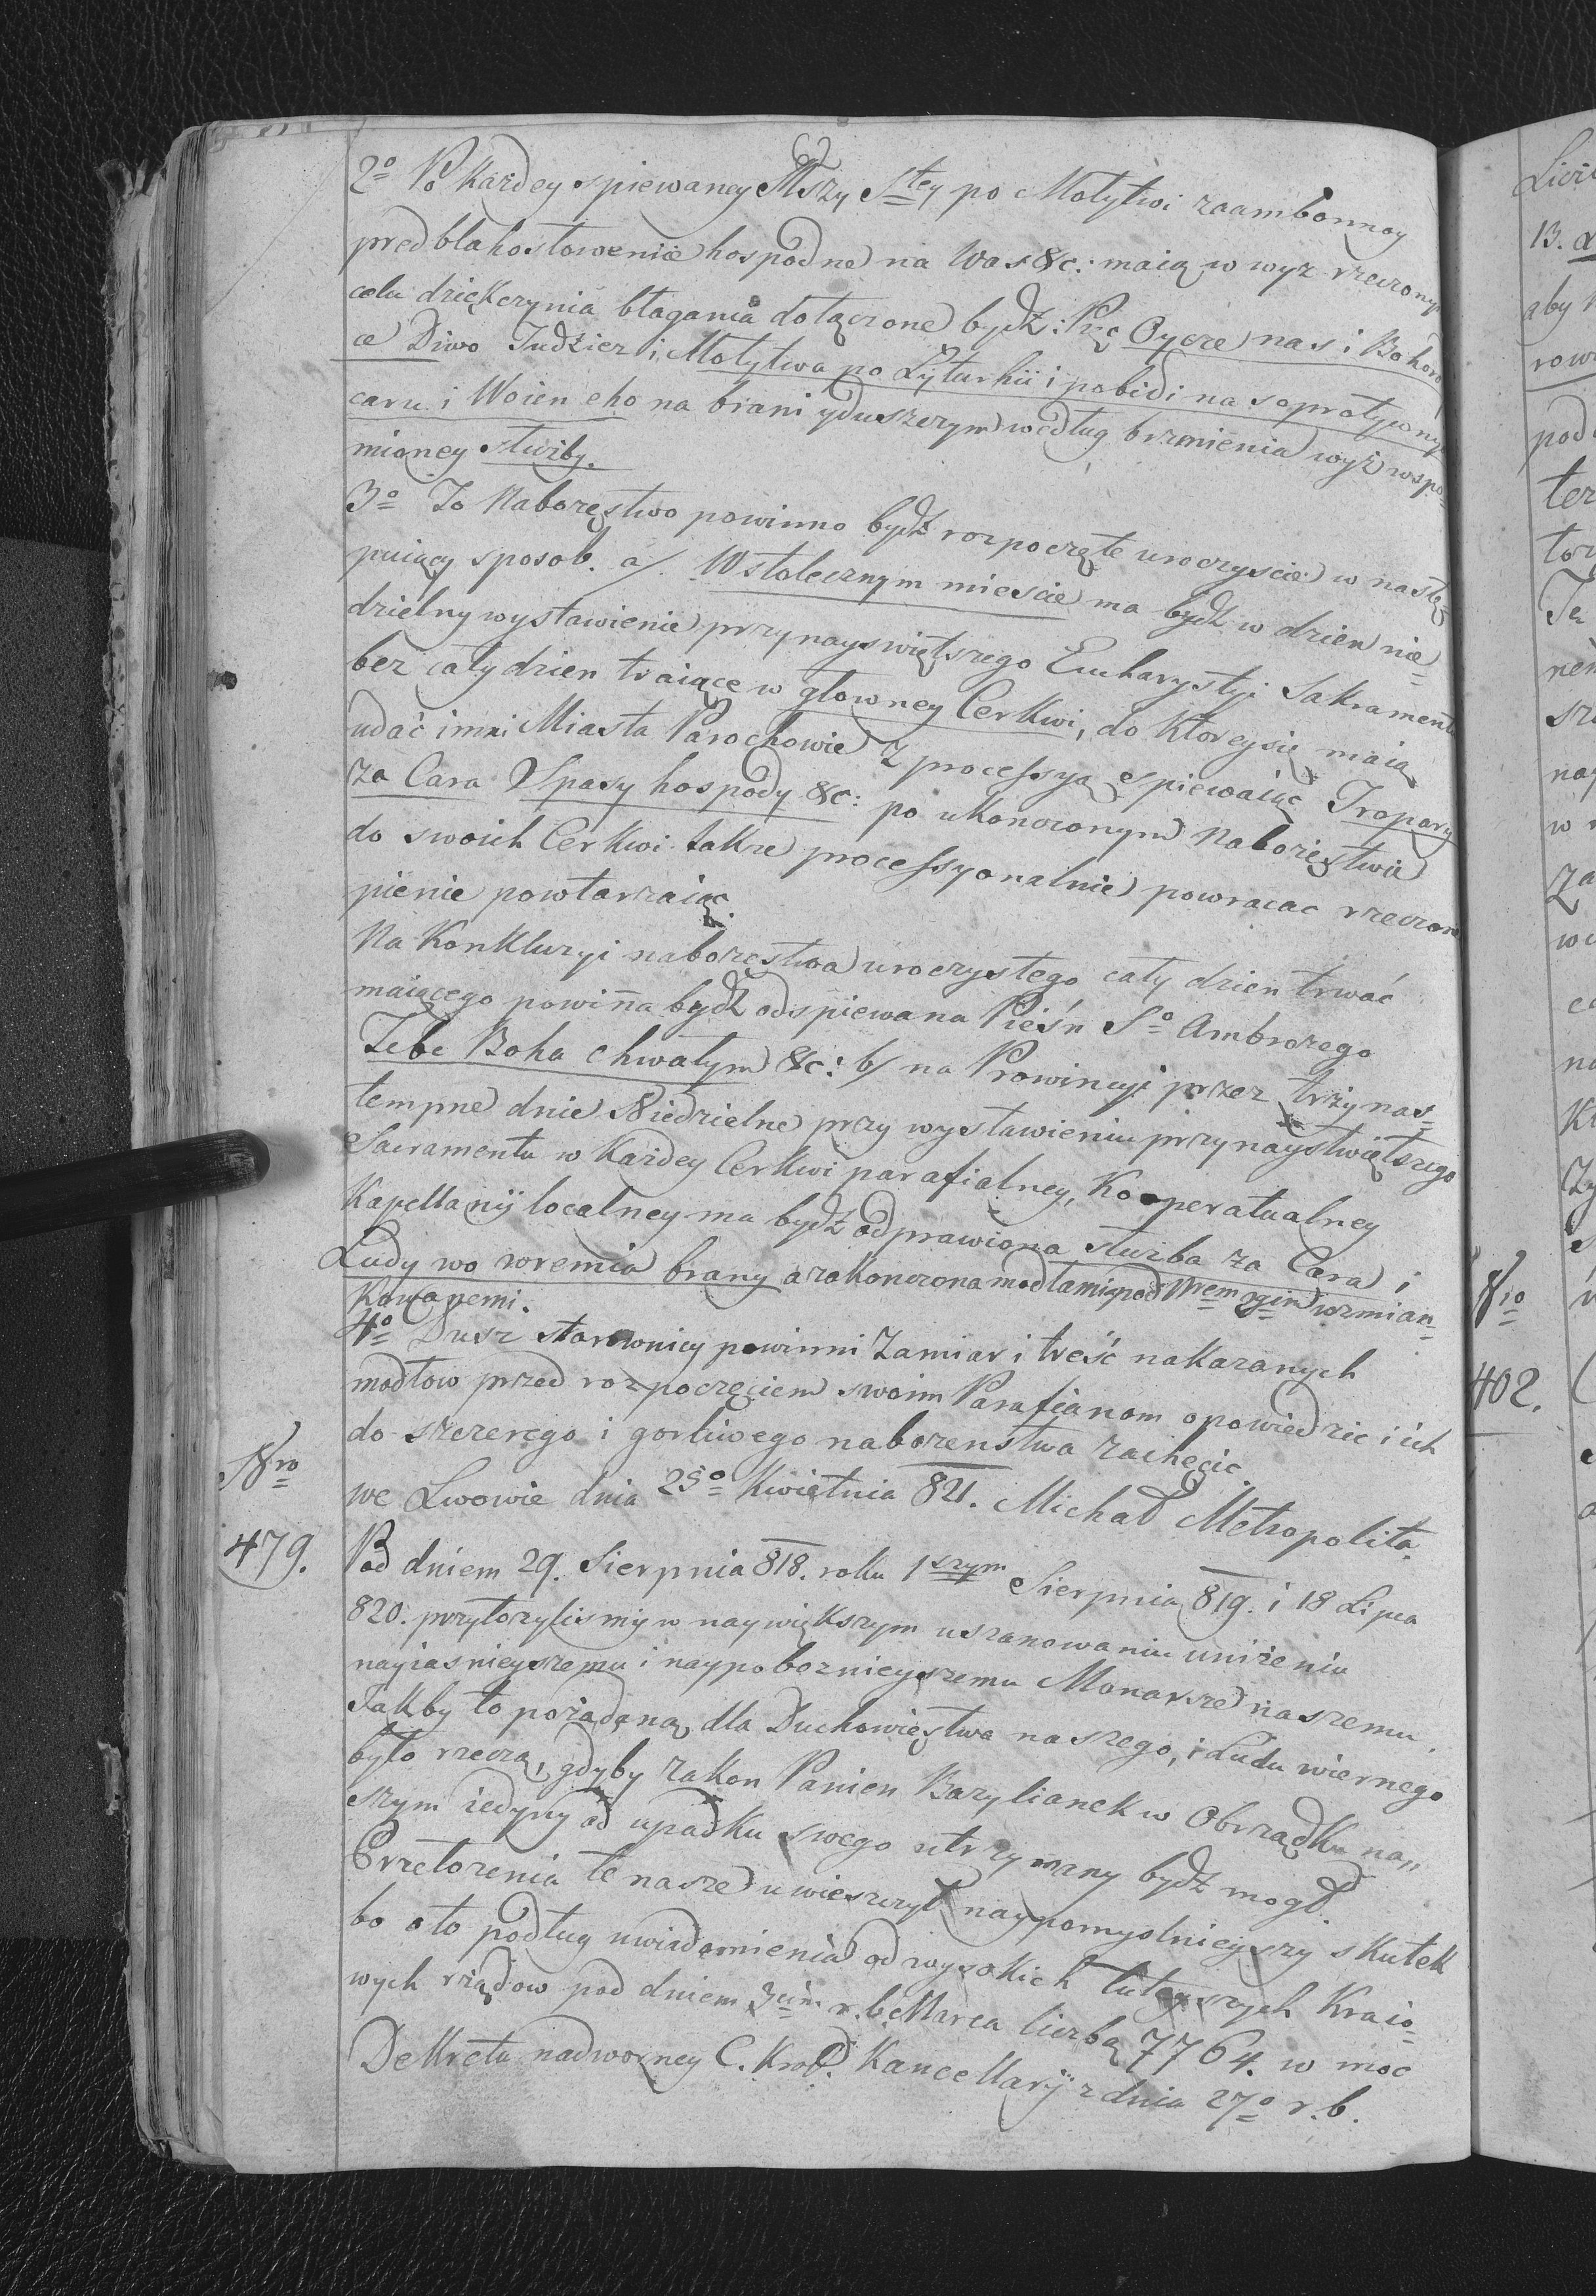 2o Po Każdey spiewaney Mszy Stey po Molytwi zaambonnoy
pred blahosłowenie hospodne na Was &c: maią w wyż rzeczonym
celu dziękczynia błagania dołączone bydź: Pzę Oycze nas i Bohoro
ce Diwo Tudziez i Molytwa po Lyturhii i pobidi na soprotywnyi
caru i Woien eho na brani yduszczym według brzmienia wyż wspo=
mioney służby.
3o To Naborzęstwo powinno bydź rozpoczęte uroczyscie w nastę
puiący sposob. a/. W stolecznym miescie ma bydź w dzien nie=
dzielny wystawienie przynayswiętszego Eucharystyi Sakramentu
bez cały dzien traiące w głowney Cerkwi, do Ktorey się maią
udać inni Miasta Parochowie z processyą spiewaiąc Tropary
za Cara Spasy hospody &c: po ukonczonym Nabożęstwie
do swoich Cerkwi także processyonalnie powracac rzeczone
pienie powtarzaiąc.
Na Konkluzyi nabożęstwa uroczystego cały dzien trwać
maiącego powinna bydź odspiewana Pieśń So Ambrozego
Tebe Boha chwalym &c: b/ na Prowincyi przez trzy nas=
tempne dnie Niedzielne przy wystawieniu przynayswiętszego
Sacramentu w Każdey Cerkwi parafialney, Kooperatualney
Kapellanij localney ma bydź odprawiona służba za Cara i
Ludy wo wremia brany a zakonczona modłami pod Nrem 2gim wzmian=
kowanemi.
4o Dusz starownicy powinni Zamiar i treść nakazanych
modłow przed rozpoczęciem swoim Parafianom opowiedzie i ich
do szczerego i gorliwego nabożenstwa zachęcic.
we Lwowie dnia 25o Kwietnia 821. Michał Metropolita.
Nro
479.
Pod dniem 29. Sierpnia 818. roku 1szym Sierpnia 819. i 18 Lipca
820. przełożylismy w naywiększym uszanowaniu uniżeniu
nayiasnieyszemu i naypobożnieyszemu Monarsze naszemu
Jakby to pożądaną dla Duchowięstwa naszego, i Ludu wiernego
było rzeczą, gdyby zakon Panien Bazylianek w Obrządku na,,
szym iedyny od upadku swego utrzymany bydź mogł.
Przełożenia te nasze uwieszczył naypomyslnieyszy skutek
bo oto podług uwiadomienia od wysokich tuteyszych Kraio=
wych rządow pod dniem 3cim r. b. Marca liczbą 7764. w moc
Dekretu nadworney C. Krol. Kancellaryi z dnia 27o r. b.
Nro
402.